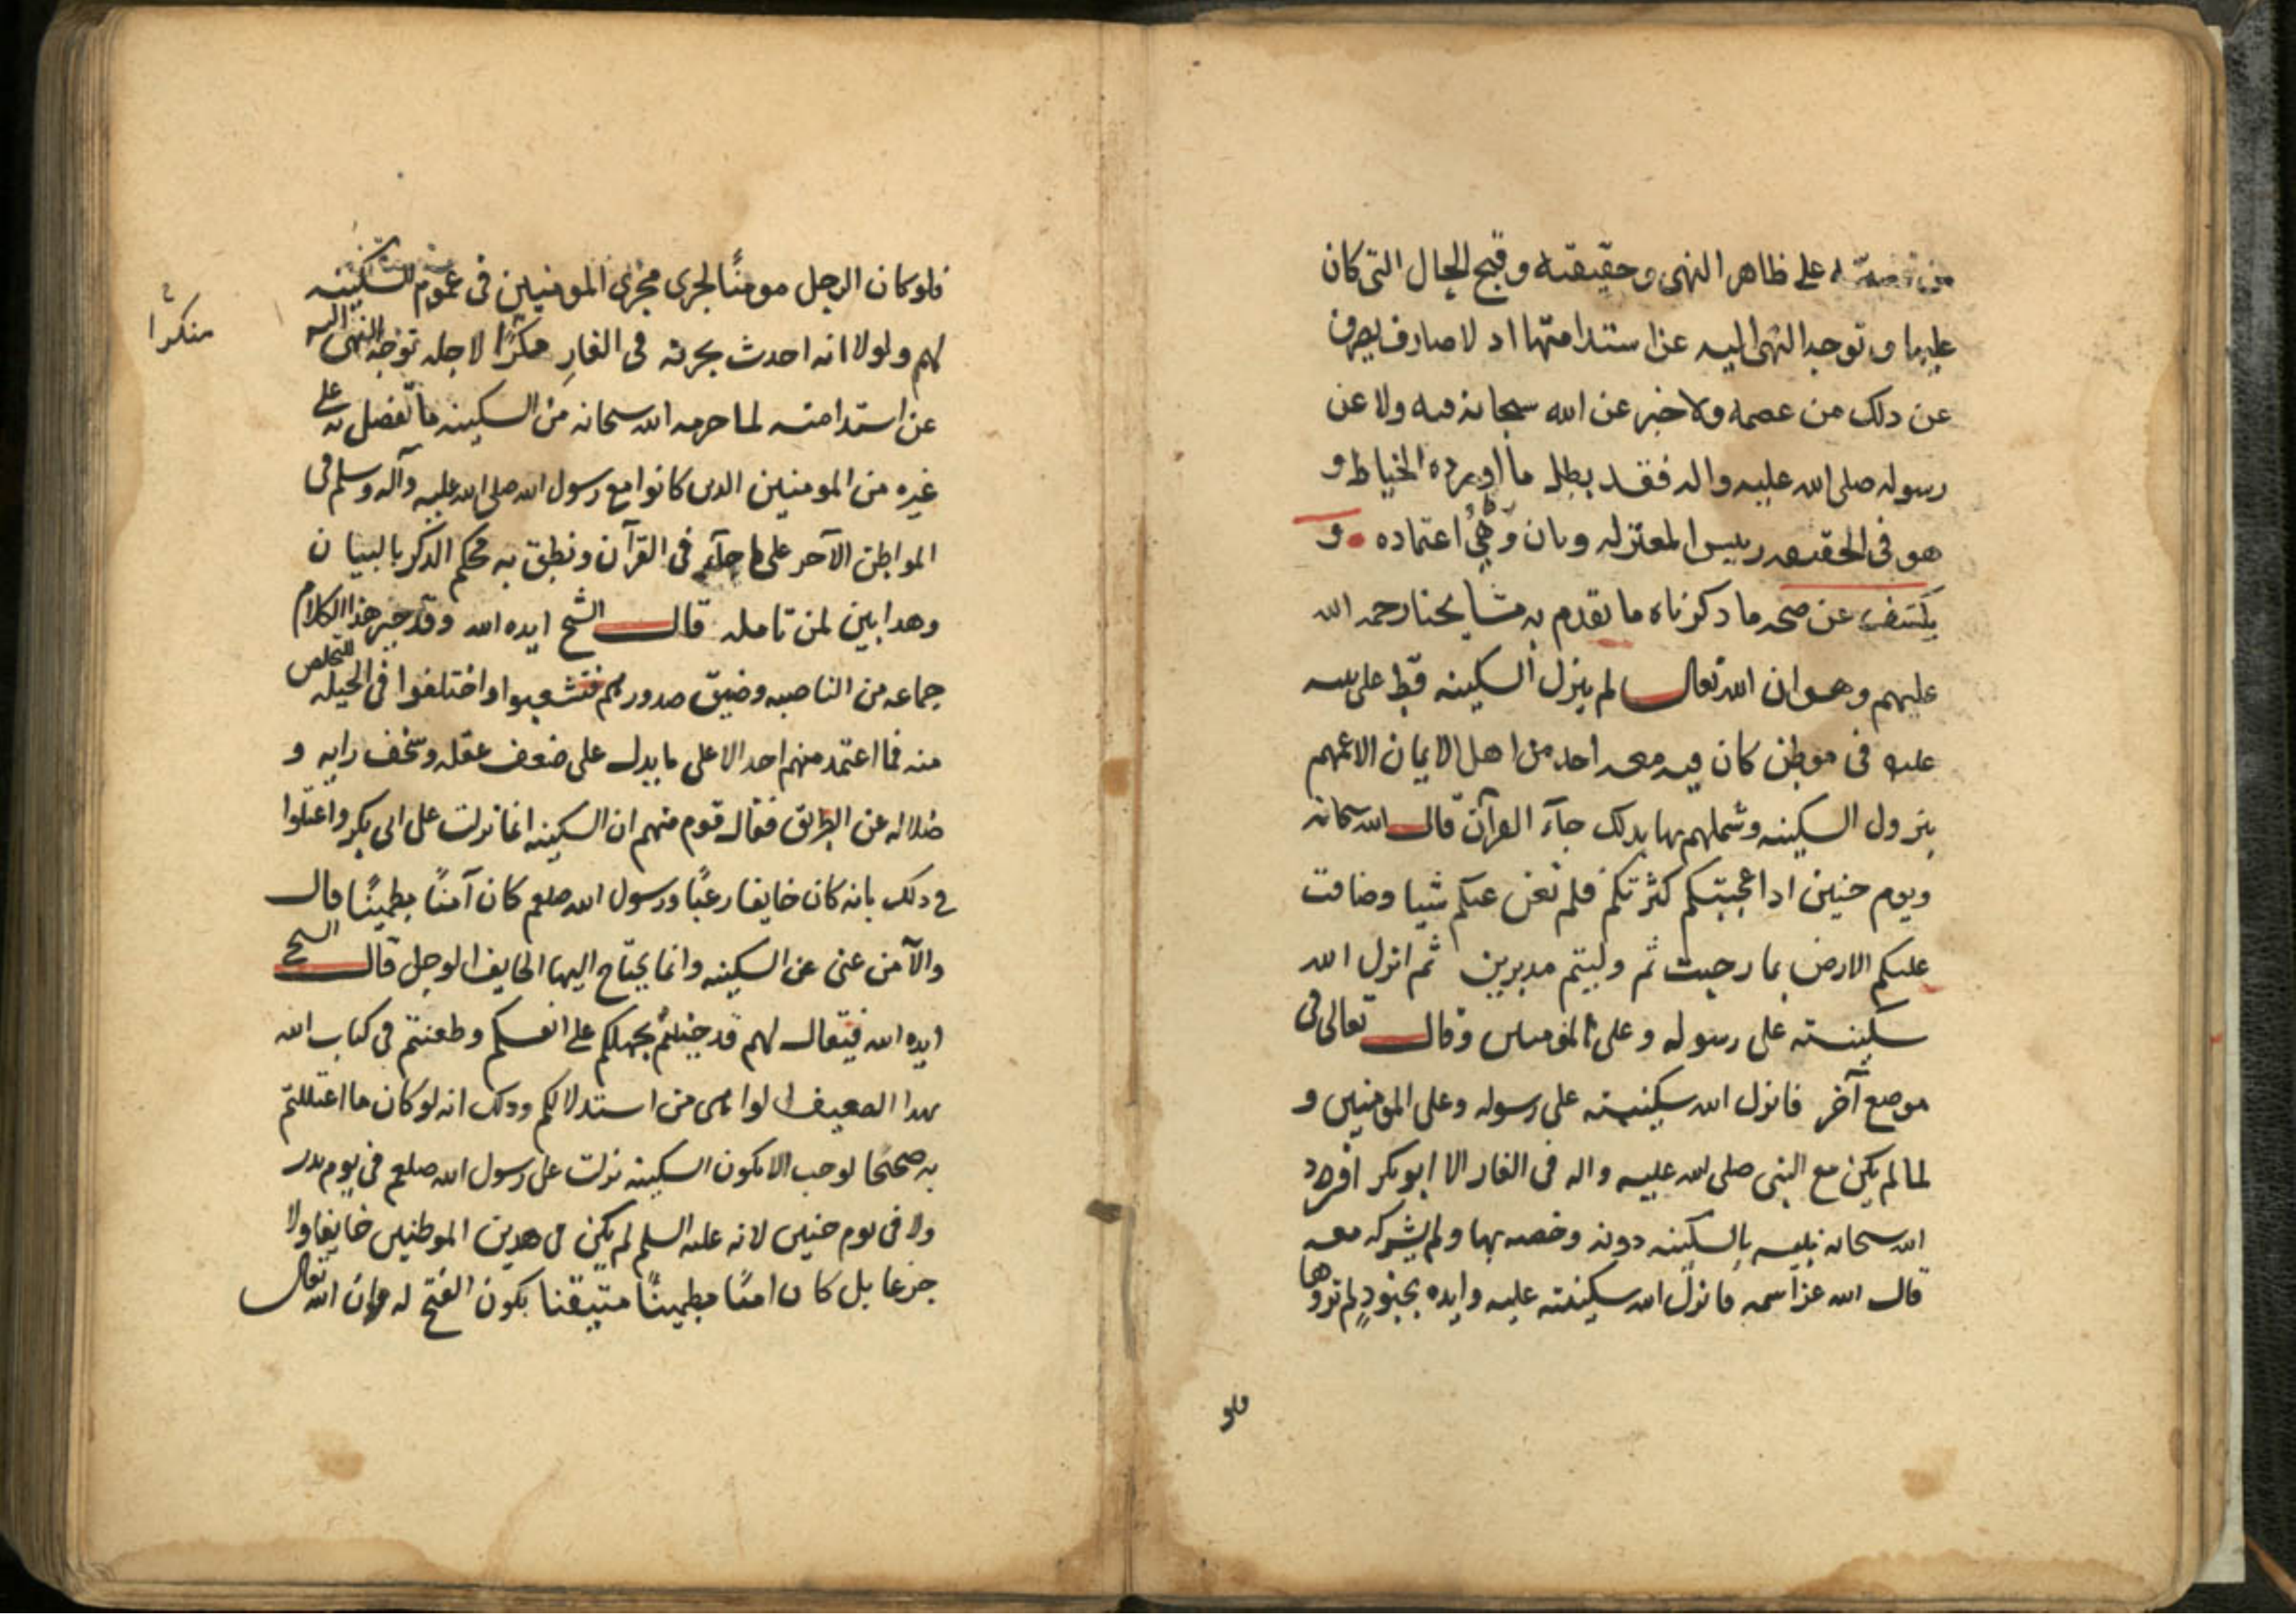 على ظاهر النهى وحقيقته وقبح الحال التى كان
عليها وتوجه النهى اليه عن استدامتها اد لا صارف يصرف
عن دلك من عصمه ولا خبر عن الله سبحانه فيه ولا عن
رسوله صلى الله عليه واله فقد بطل ما اورده الخياط و
هو فى الحقيقه رييس المعتزله وبان وَهْيُ اعتماده و
يكشف عن صحه ما دكرناه ما تقدم به مشايخنا رحمه الله
عليهم وهو ان الله تعالى لم ينزل السكينه قط على نبيه
عليه فى موطن كان فيه معه احد من اهل الايمان الا عمهم
بنزول السكينه وشملهم بها بدلك جآء القرآن قال الله سبحانه
ويوم حنين اد اعجبتكم كثرتكم فلم تغن عنكم شيا وضاقت
عليكم الارض بما رحبت ثم وليتم مدبرين ثم انزل الله
سكينته على رسوله وعلى المؤمنين وقال تعالى فى
موضع آخر فانزل الله سكينته على رسوله وعلى المؤمنين و
لما لم يكن مع النبى صلى الله عليه واله فى الغار الا ابو بكر افرد
الله سبحانه نبيه بالسكينه دونه وخصه بها ولم يشركه معه
قال الله عز اسمه فانزل الله سكينته عليه وايده بجنودٍ لم تروها
فلو
فلو كان الرجل مومنًا لجرى مجرى المومنين فى عموم السكينه
لهم ولولا انه احدث بحزنه فى الغارِ منكرًا لاجله توجه النهى اليه
عن استدامته لما حرمه الله سبحانه من السكينه ما تفضل به على
غيره من المومنين الدىن كانوا مع رسول الله صلى الله عليه وآله وسلم فى
المواطن الآخر على ما جآء فى القرآن ونطق به محكم الدكر بالبيان
وهدا بين لمن تامله قال الشيخ ايده الله وقد حير هذا الكلام
جماعه من الناصبه وضيق صدورهم فتشعبوا واختلفوا فى الحيله للتخلص
منه فما اعتمد منهم احد الا على ما يدل على ضعف عقله وسخف رايه و
ضلاله عن الطريق فقال قوم منهم ان السكينه انما نزلت على ابى بكر واعتلوا
فى دلك بانه كان خايفا رعبًا ورسول الله صلعم كان آمنًا مطمينًا قال
والآمن غنى عن السكينه وانما يحتاج اليها الخايف الوجل قال الشيخ
ايده الله فيقال لهم قد جنيتم بجهلكم على انفسكم وطعنتم فى كتاب الله
بهدا الضعيف الواهى من استدلالكم ودلك انه لو كان ما اعتللتم
به صحيحا لوجب الا تكون السكينه نزلت على رسول الله صلعم فى يوم بدر
ولا فى يوم حنين لانه عليه السلم لم يكن فى هدين الموطنين خايفا ولا
جزعا بل كان امنًا مطمينًا متيقنا بكون الفتح له وان الله تعالى
منكرا